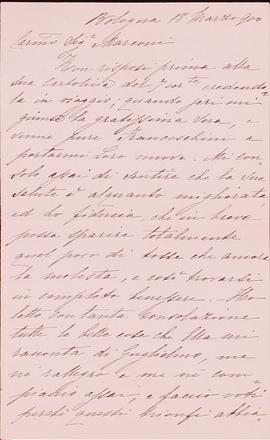 Bologna 18 Marzo 900
Carmo Sigr Marconi
Non risposi prima alla
sua Cartolina del 7 corte credendo
la in viaggio, quando jeri mi
giunse la gratissima Sua, e
venne pure Franceschini a
portarmi Loro nuove. Mi con
solo assai di sentire che la Sua
salute è alquanto migliorata
ed ho fiducia, che in breve
possa sparire totalmente
quel poco di tosse che ancora
la molesta, e così trovarsi
in completo benessere. - Ho
letto con tanta consolazione
tutte le belle cose che Ella mi
racconta di Guglielmo, me
ne rallegro e me ne com
piaccio assai, e faccio voti
perchè questi trionfi abbia